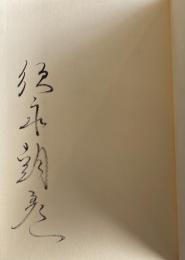 須永朝彦